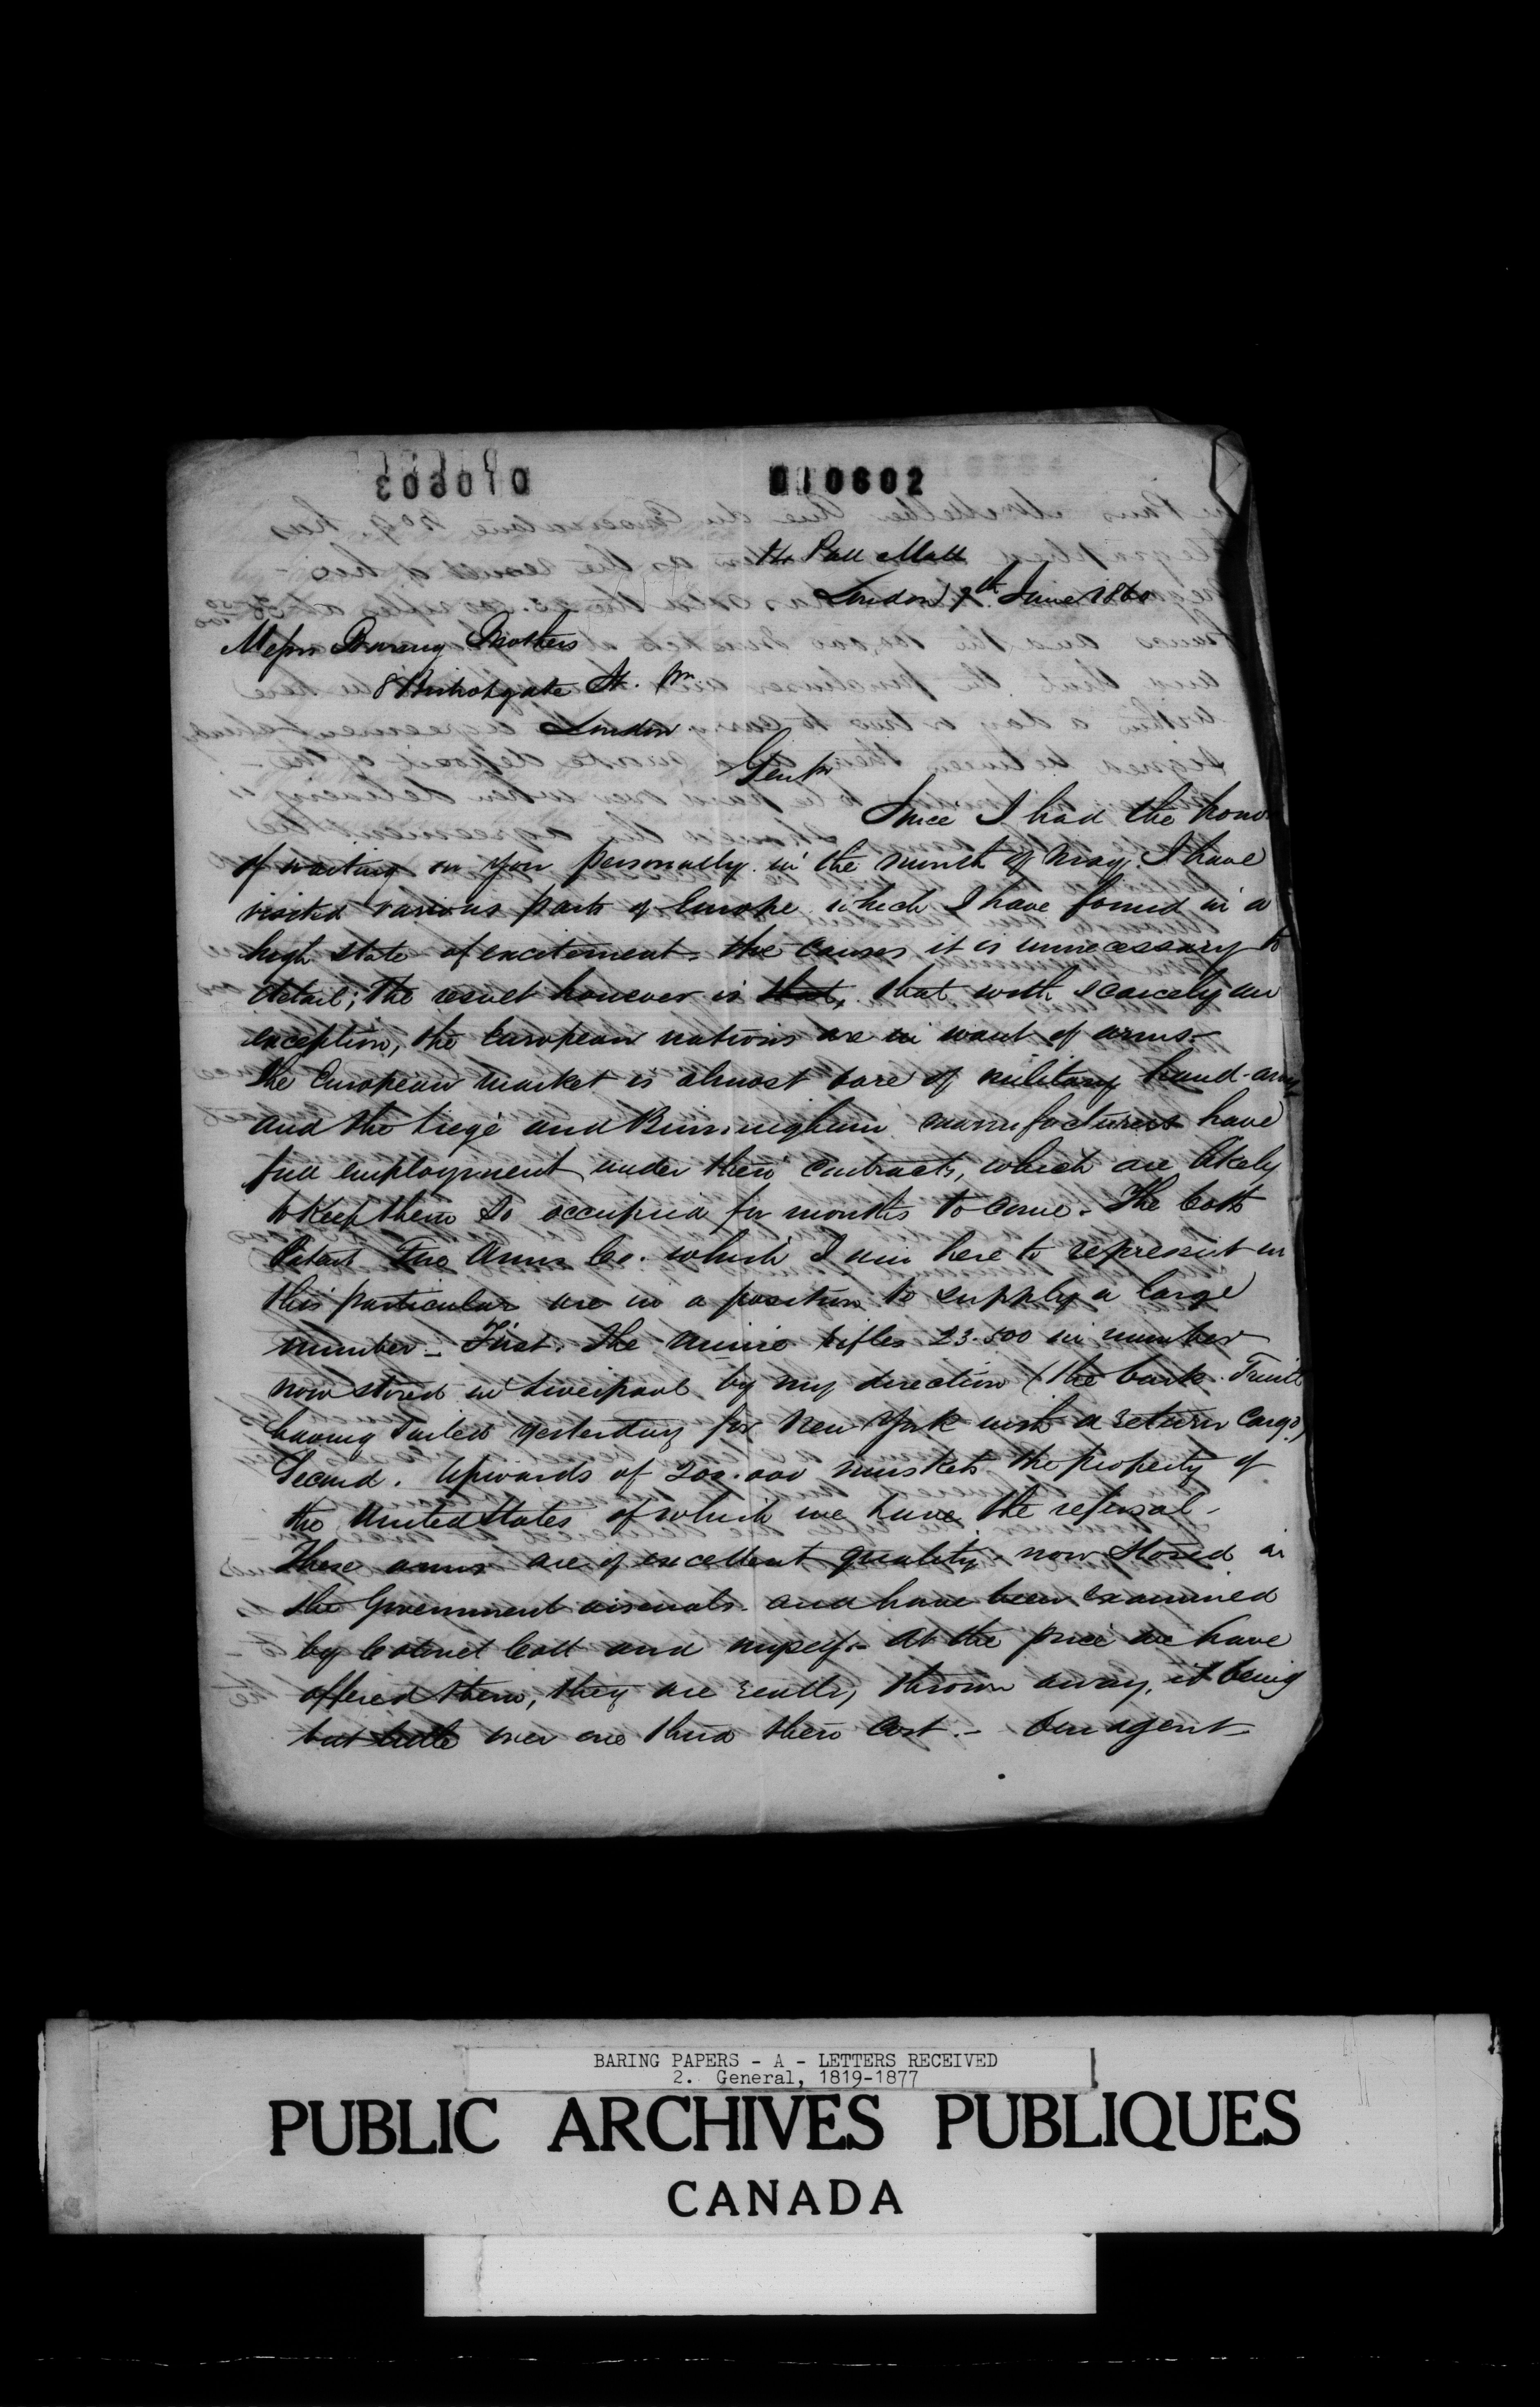 010602
Pall Mall
London 9th June 1860
Messrs Baring Brothers
8 Bishopsgate St. Wn.
London
Gentn
Since I had the honor
of waiting on you personally in the month of May, I have
visited various parts of Europe which I have found in a
high state of excitement. the causes it is unnecessary to
detail; the result however is that, that with scarcely an
exception, the European nations are in want of arms.
The European market is almost bare of military hand-arms
and the Liege and Birmingham manufacturers have
full employment under their contracts, which are likely
to keep them so occupied for months to come. The Colts
Patent Fire Arms Co. which I am here to represent in
this particular are in a position to supply a large
number - First. The Minie rifles 23.500 in number
now stored in Liverpool by my direction (the bark
having sailed yesterday for New York with a return cargo)
Second. Upwards of 200.000 muskets the property of
the United States of which we have the refusal -
These arms are of excellent quality - now stored in
the Government arsenals - and have been examined
by Colonel Colt and myself - At the price we have
offered them, they are really thrown away, it being
but little over one third their cost. - Our agent
BARING PAPERS - A - LETTERS RECEIVED
2. General, 1819-1877
PUBLIC ARCHIVES PUBLIQUES
CANADA